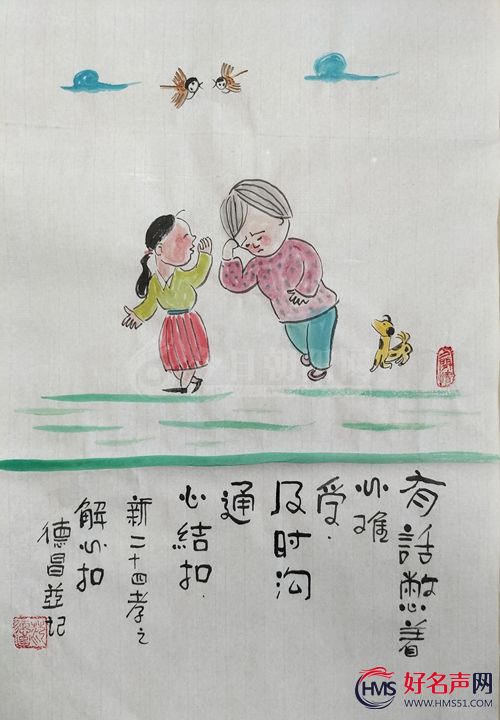 有話憋着
心难
受.
及时沟
通
心结扣.
新二十四孝之
解心扣
德昌并记
HMS
好名声网
WWW.HMS51.COM